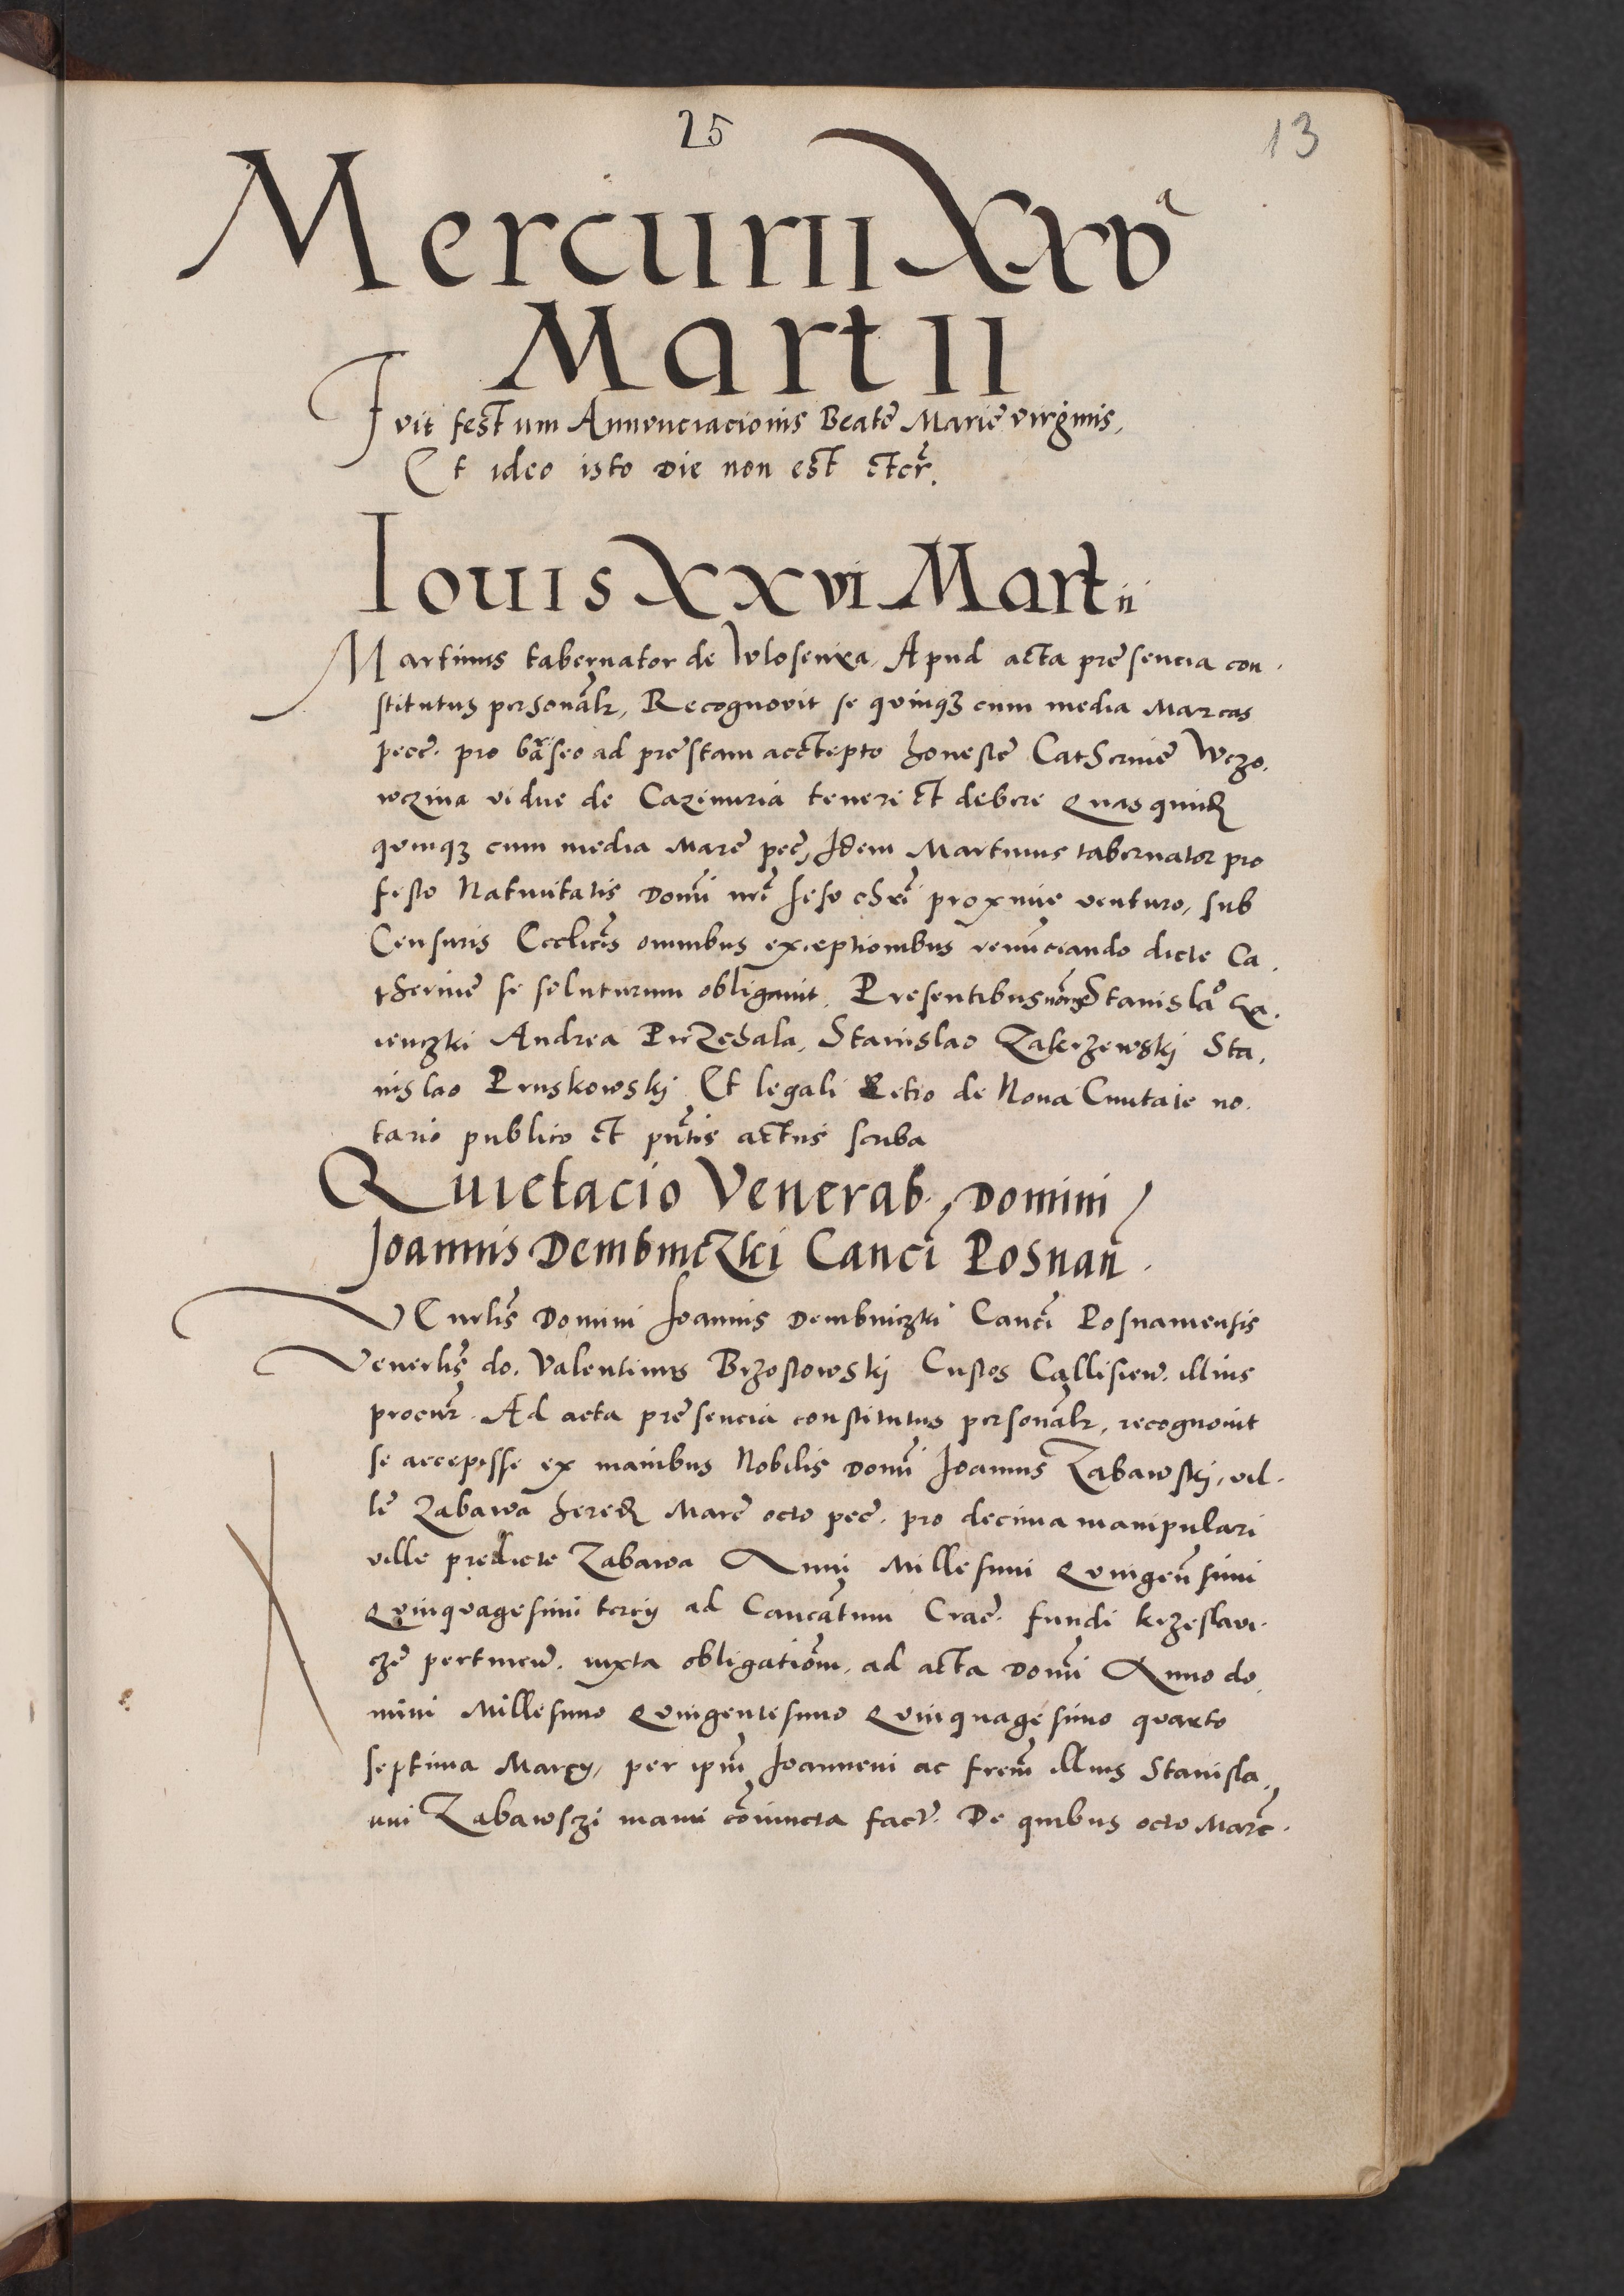 25
13
Mercurii XXVa
Martii
Fvit festum Annvnciacionis Beatę Marię virginis,
Et ideo isto die non est etcr̃.
Iouis XXVI Martii
Martinus tabernator de Wlosenica, Apud acta pręsencia con-
stitutus personãlr, Recognovit se quinqz cum media Marcas
pecc̃. pro seo ad pręstam accepto honestę Catherinę Wczo-
wczina viduę de Cazimiria teneri et debere Quas quid
quinqz cum media Marc̃ pec̃, Idem Martinus tabernator pro
festo Natiuitatis Domĩ nrĩ Jesu chrĩ proxime venturo, sub
Censuris Ecclic̃is omnibus exceptionibus renunciando dicte Ca-
therinę se soluturum obligauit. Presentibus Stanislao
Andrea Przechala, Stanislao Zakrzewskj Sta-
nislao Pruskowskj Et legali Petro de Noua Ciuitate no-
tario publico et pñtis actus scriba
Quietacio Venerab. Domini
Joannis Dembniczki Cancĩ Posnañ.
VEnrlis̃ Domini Joannis Dembniczki Cancĩ Posnaniensis
Venerlis̃ do. Valentinus Brzostowskj Custos Callisieñ. illius
procur̃. Ad acta pręsencia constitutus personãlr, recognouit
se accepisse ex manibus Nobilis Domĩ Joannis Zabawskj, vil-
lę Zabawa hered Marc̃ octo pec̃. pro decima manipulari
ville predicte Zabawa Anni Millesimi Quingeñsimi
Quinquagesimi tercij ad Cancẽtum Crac̃. fundi krzeslaui-
czę pertineñ. iuxta obligatiõm, ad acta Domĩ Anno do-
mini Millesimo Quingentesimo Quinquagesimo quarto
septima Marcij, per ipm̃ Joannem ac frem̃ illius Stanisla-
um Zabawsczi manu cõiuncta fact̃. De quibus octo Marc̃.